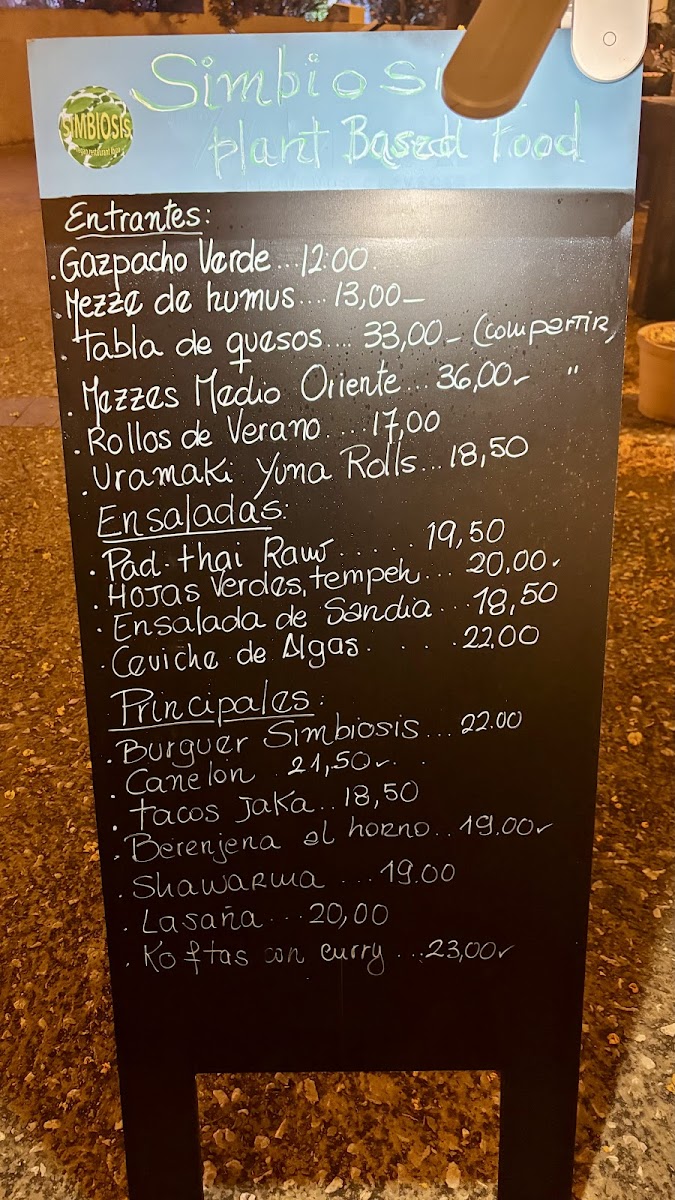 Simbiosi
plant Based Food
SIMBIOSIS
Entrantes:
.Gazpacho Verde...12:00.
.Mezze de humus....13,00_
.Tabla de quesos....33,00_ (compartir)
.Mezzes Medio Oriente...36,00- "
.Rollos de Verano....17,00
.Uramaki Yuna Rolls...18,50
Ensaladas:
.Pad thai Raw......19,50
.Hojas Verdes, tempeh...20,00-
.Ensalada de Sandia...18,50
.Ceviche de Algas.....22,00
Principales:
.Burguer Simbiosis...22.00
.Canelon .21,50-..
.Tacos Jaka..18,50
.Berenjena al horno..19.00-
.Shawarma ...19.00
.Lasaña...20,00
.Koftas con curry...23,00-